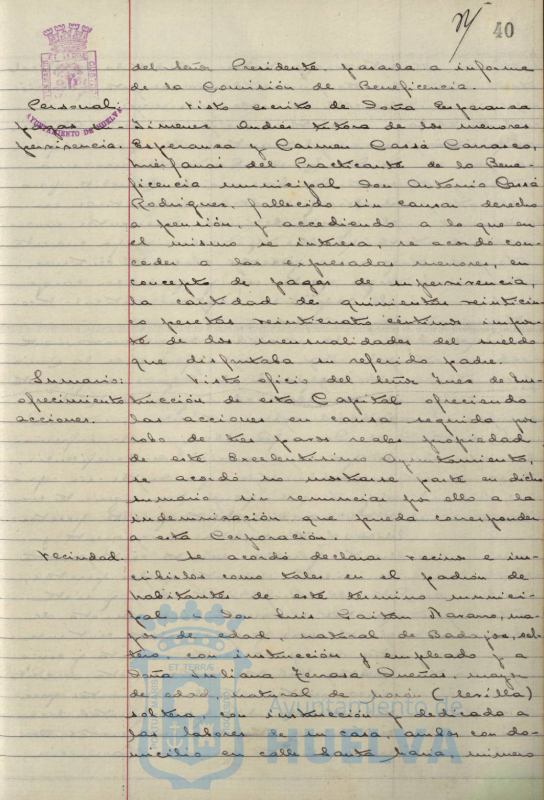 40
del Señor Presidente, pasarla a informe
de la Comisión de Beneficencia.
Personal:
pagas su-
pervivencia.
AYUNTAMIENTO DE HUELVA
Visto escrito de Doña Esperanza
Jimenez Andés tutora de los menores
Esperanza y Carmen Cassá Carrasco,
huérfanas del Practicante de la Bene-
ficencia municipal Don Antonio Cassá
Rodriguez, fallecido sin causar derecho
a pensión, y accediendo a lo que en
el mismo se interesa, se acordó con-
ceder a las expresadas menores, en
concepto de pagas de supervivencia,
la cantidad de quinientas veinticin-
co pesetas veinticuatro céntimos impor-
te de dos mensualidades del sueldo
que disfrutaba su referido padre.
Sumario:
ofrecimiento
acciones.
Visto oficio del Señor Juez de Ins-
trucción de esta Capital ofreciendo
las acciones en causa seguida por
robo de tres pavos reales propiedad
de este Excelentísimo Ayuntamiento,
se acordó no mostrarse parte en dicho
sumario sin renunciar por ello a la
indemnización que pueda corresponder
a esta Corporación.
Vecindad.
Se acordó declarar vecinos e ins-
cribirlos como tales en el padrón de
habitantes de este término munici-
pal a Don Luis Gaitán Navarro, ma-
yor de edad, natural de Badajoz, sol-
tero con instrucción y empleado y a
Doña Juliana Dueñas, mayor
de edad, natural de Morón (Sevilla)
soltera con instrucción y dedicada a
las labores de su casa, ambos con do-
micilio en calle Santa María número
Ayuntamiento de
HUELVA